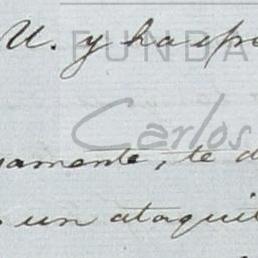 U. y ha
FUNDA
Carlos
amente, te d
un ataqui